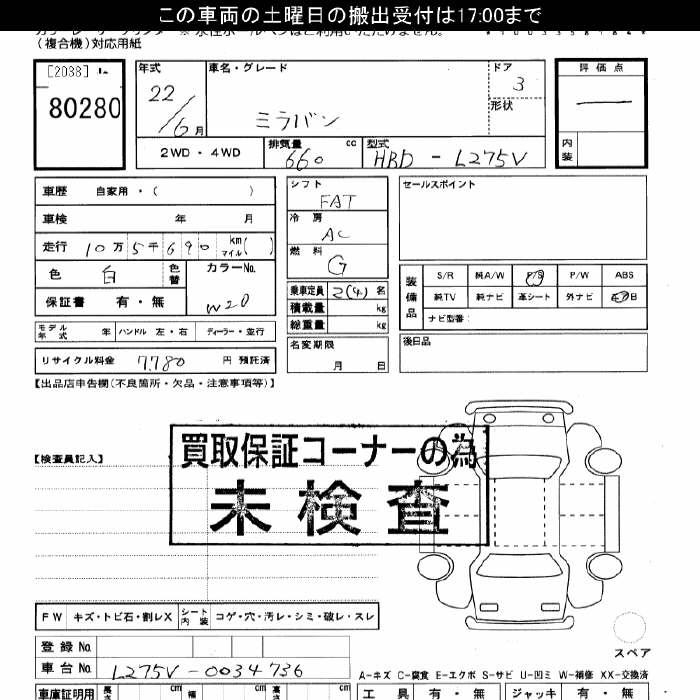 この車両の土曜日の搬出受付は17:00まで
(複合機)対応用紙
[2038]
80280
年式 22/6月
車名・グレード ミラバン
ドア 3
形状
評価点 —
内装
2WD・4WD
排気量 660 cc
型式 HBD - L275V
車歴 自家用・( )
車検 年 月
走行 10万5千690 km マイル( )
色 白 色替 カラーNo. W20
保証書 有・無
モデル年式 年 ハンドル 左・右 ディーラー・並行
リサイクル料金 7780 円 預託済
シフト FAT
冷房 AC
燃料 G
乗車定員 2(4) 名
積載量 kg
総重量 kg
名変期限 月 日
セールスポイント
装備品
S/R 純A/W P/S P/W ABS
純TV 純ナビ 革シート 外ナビ
ナビ型番:
後日品
【出品店申告欄(不良箇所・欠品・注意事項等)】
買取保証コーナーの為
未検査
【検査員記入】
FW キズ・トビ石・割レX シート内装 コゲ・穴・汚レ・シミ・破レ・スレ
登録No.
車台No. L275V-0034736
スペア
A-キズ C-腐食 E-エクボ S-サビ U-凹ミ W-補修 XX-交換済
車庫証明用 長さ cm 幅 cm 高さ cm
工具 有・無 ジャッキ 有・無